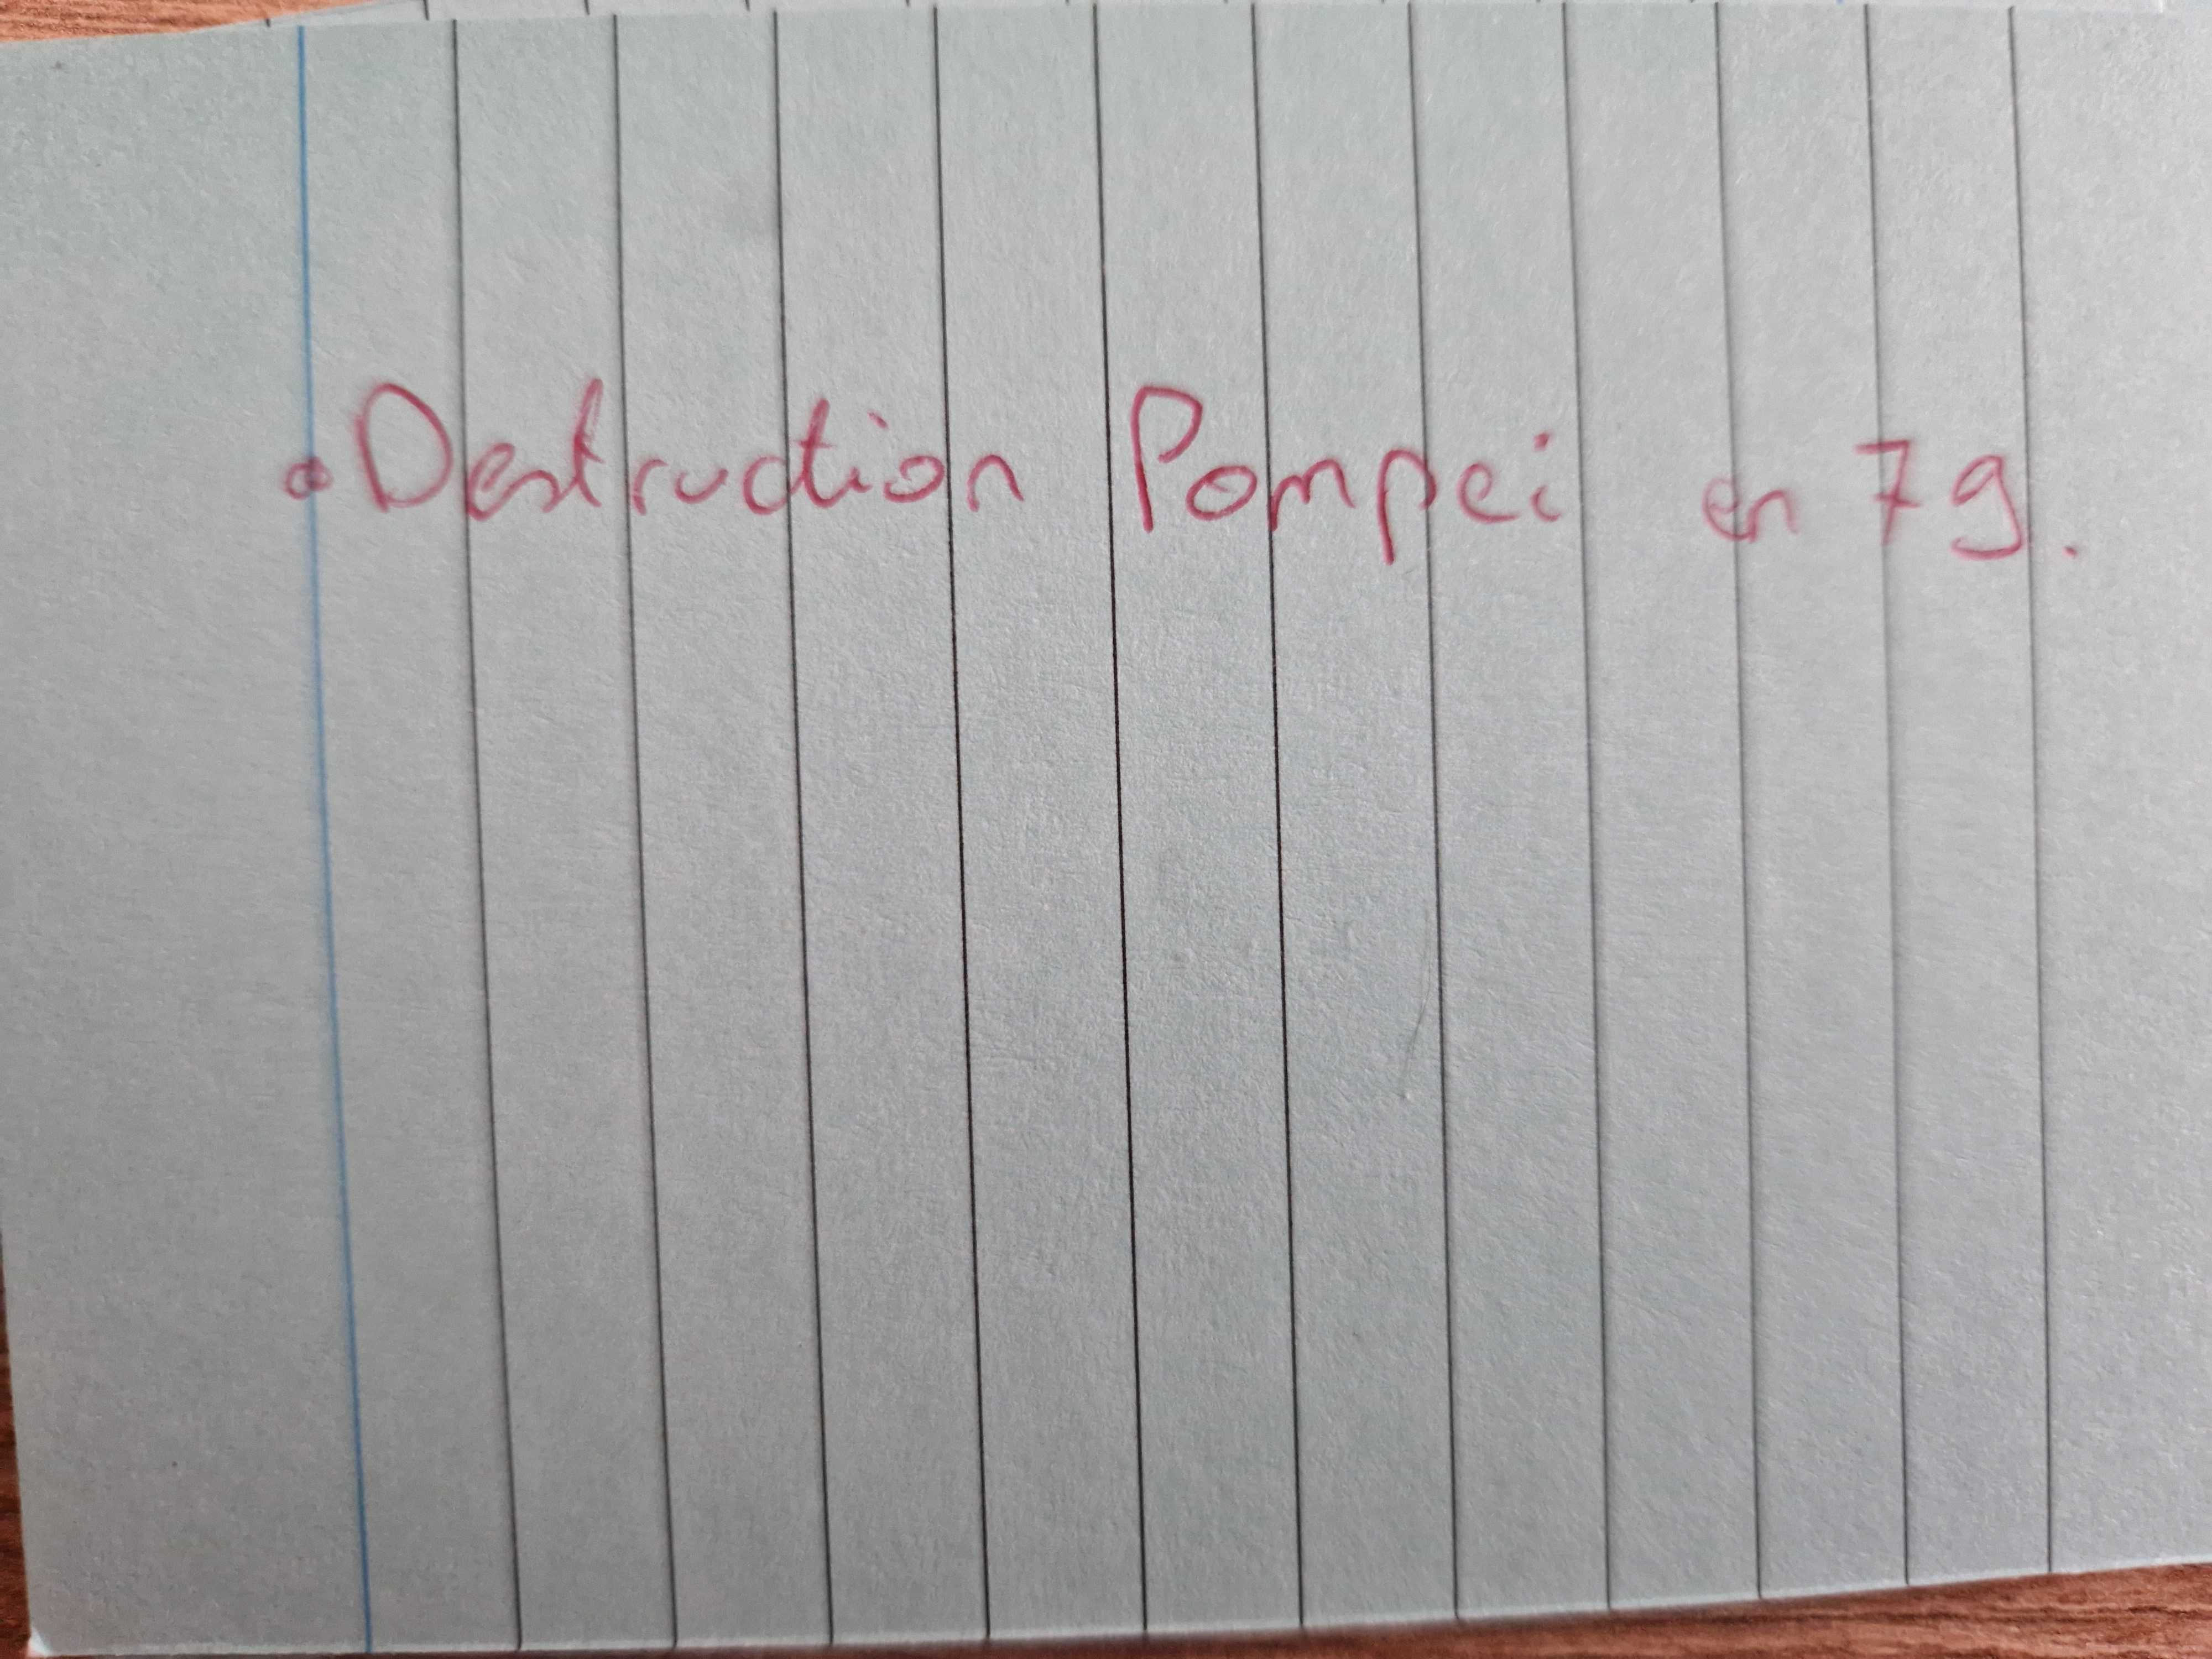 • Destruction Pompei en 79.